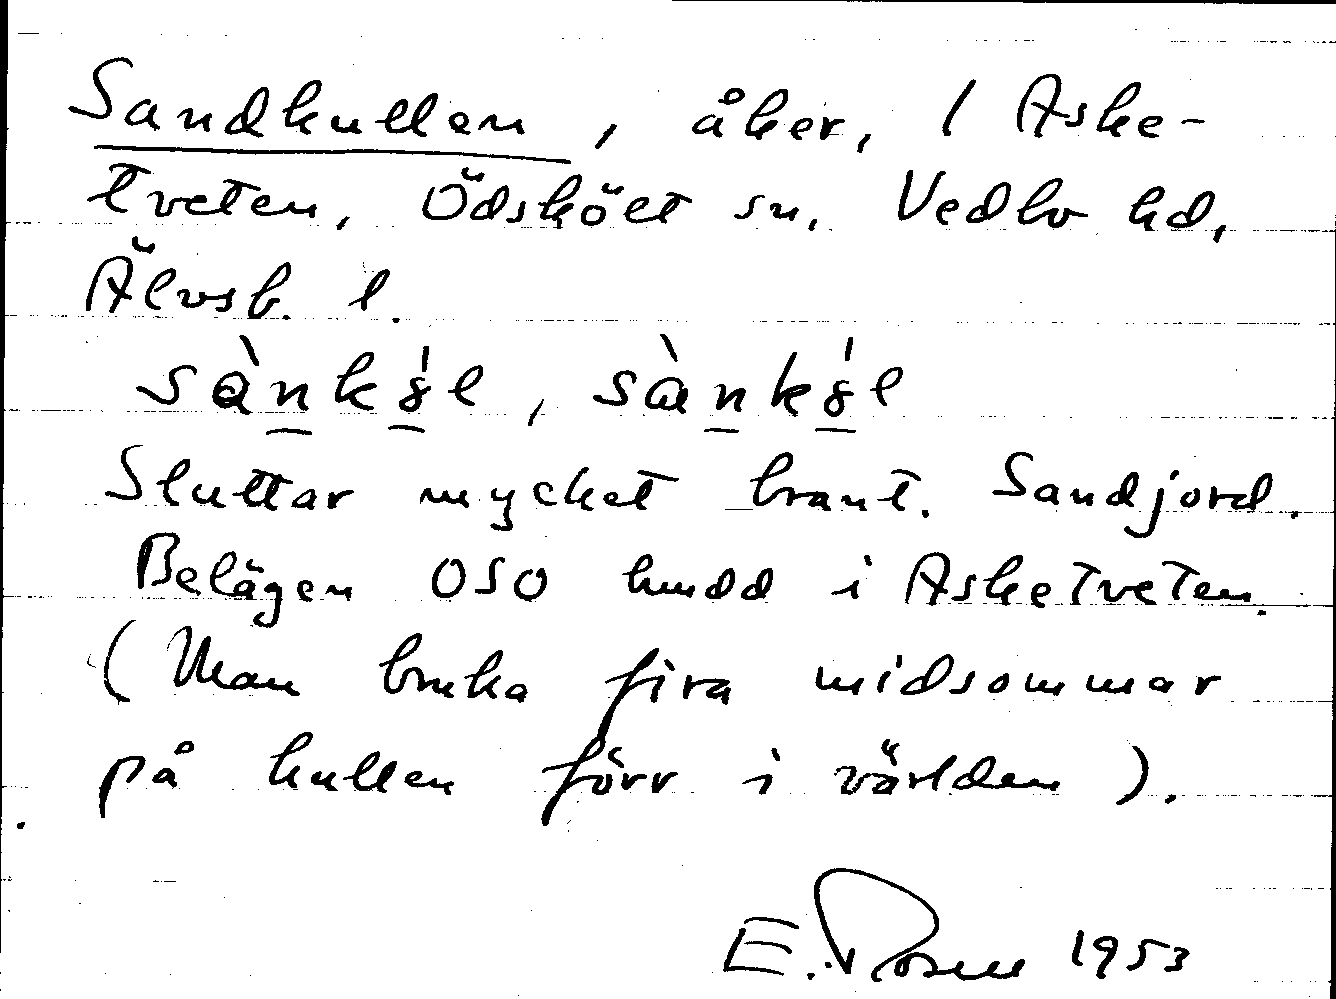 Sandkullen, åker, / Aske-
tveten, Ödskölt sn, Vedbo hd,
Älvsb. l.
sànk8́l, sànk8́l
Sluttar mycket brant. Sandjord.
Belägen OSO om i Asketveten.
(Man bruka fira midsommar
på kullen förr i världen).
E. Rosell 1953